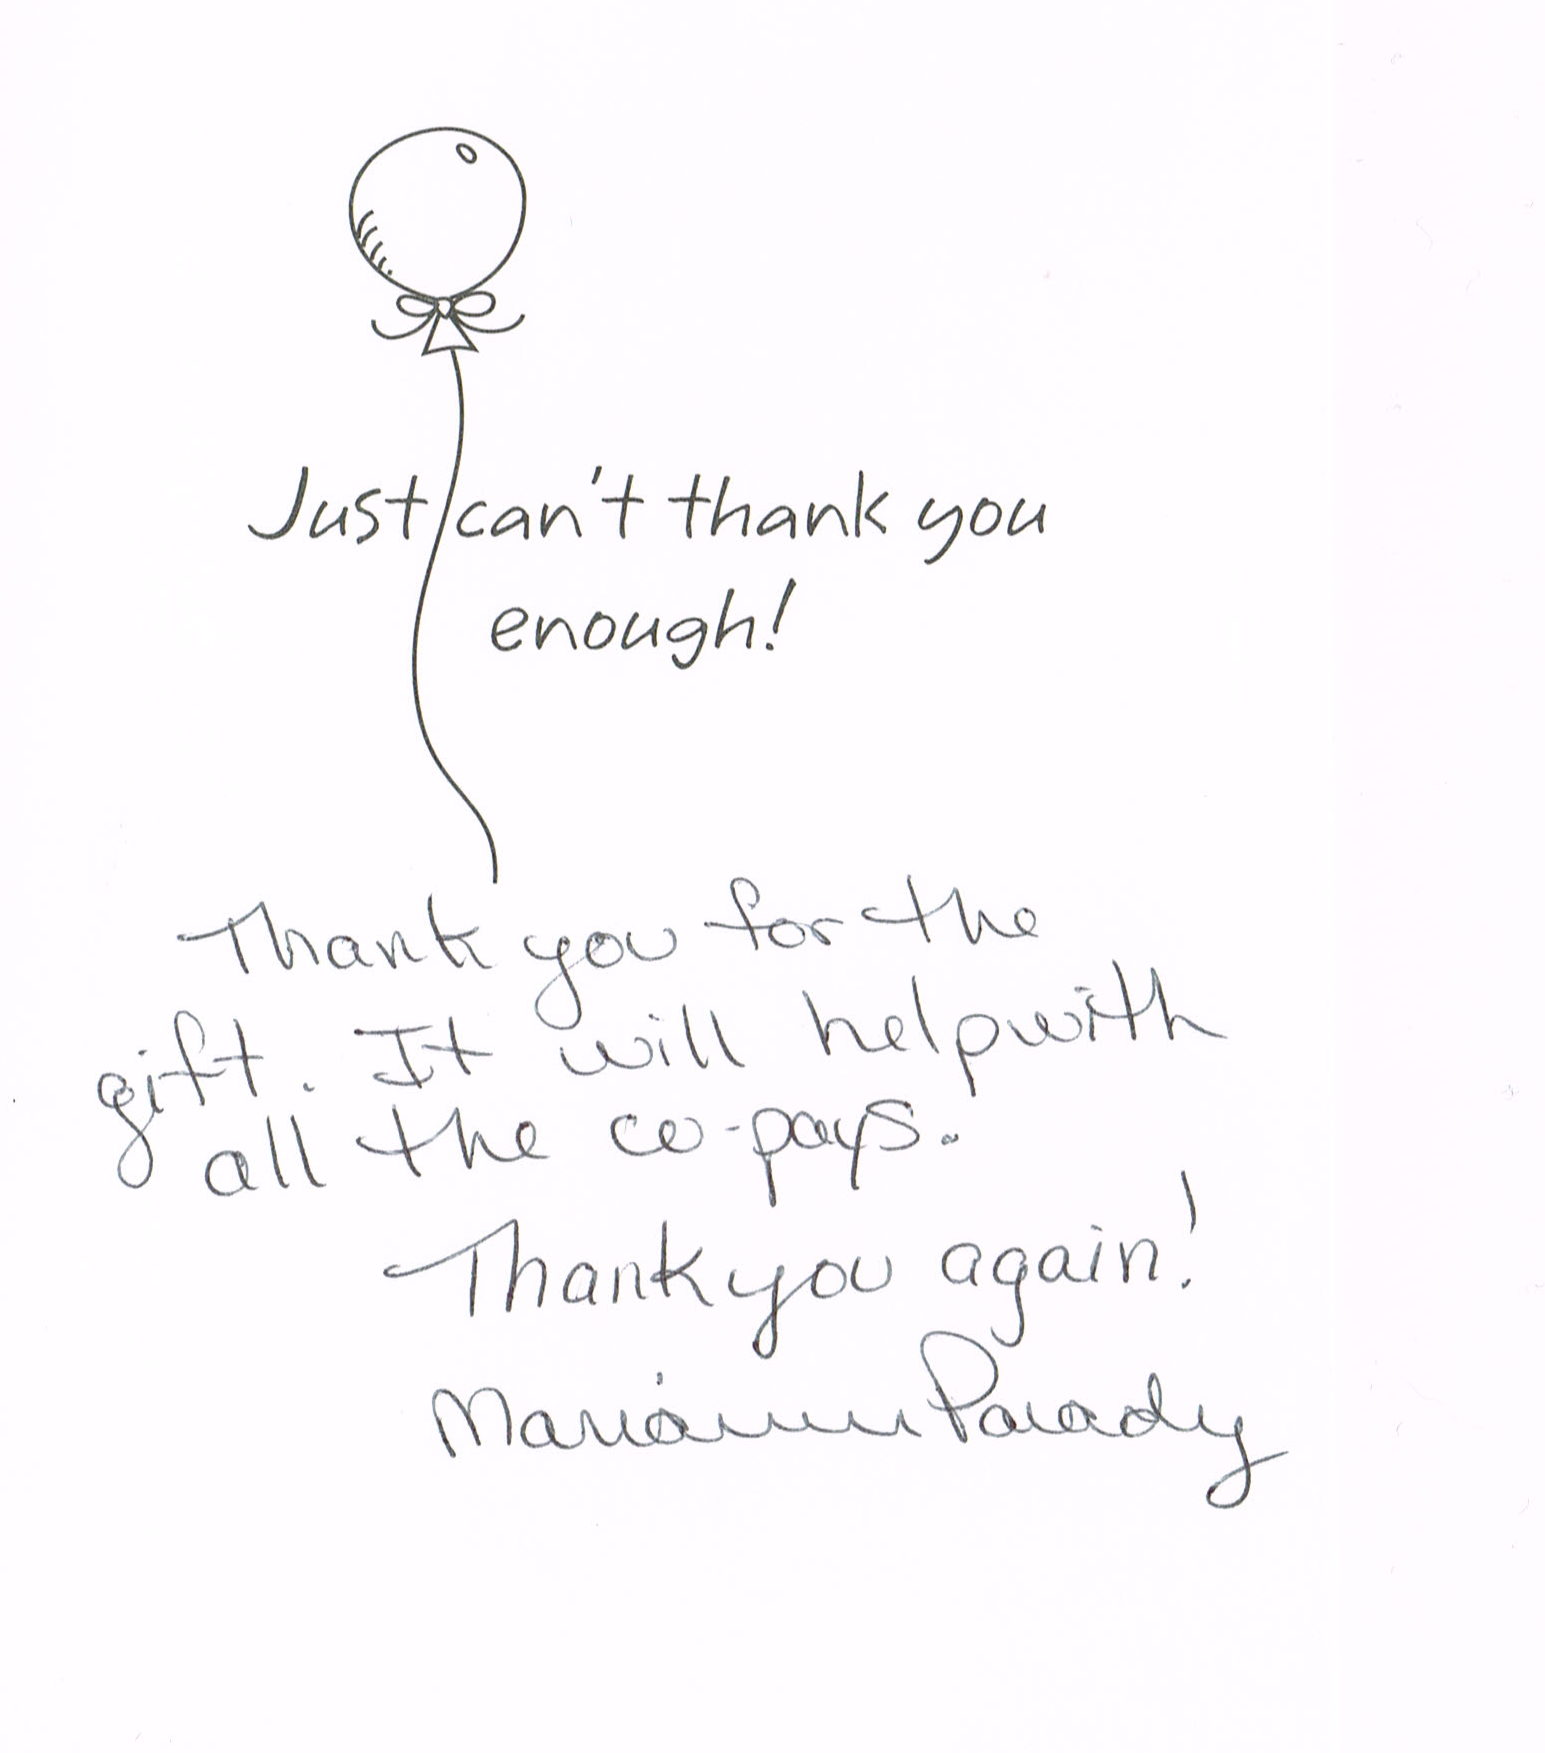 Just can't thank you
enough!
Thank you for the
gift. It will help with
all the co-pays.
Thank you again!
Mariann Parady